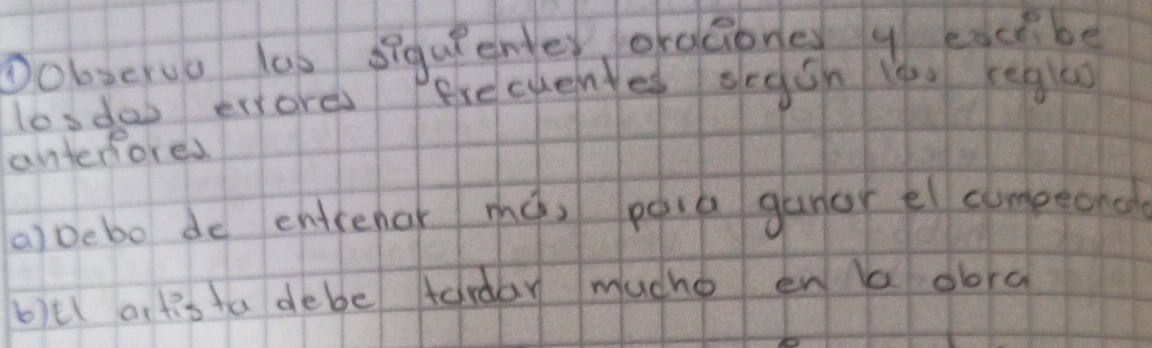 ① Observa las siguientes oraciones y escribe
los dos errores frecuentes según las reglas
anteriores
a) Debo de entrenar más para ganar el campeonato
b) El artista debe tardar mucho en la obra